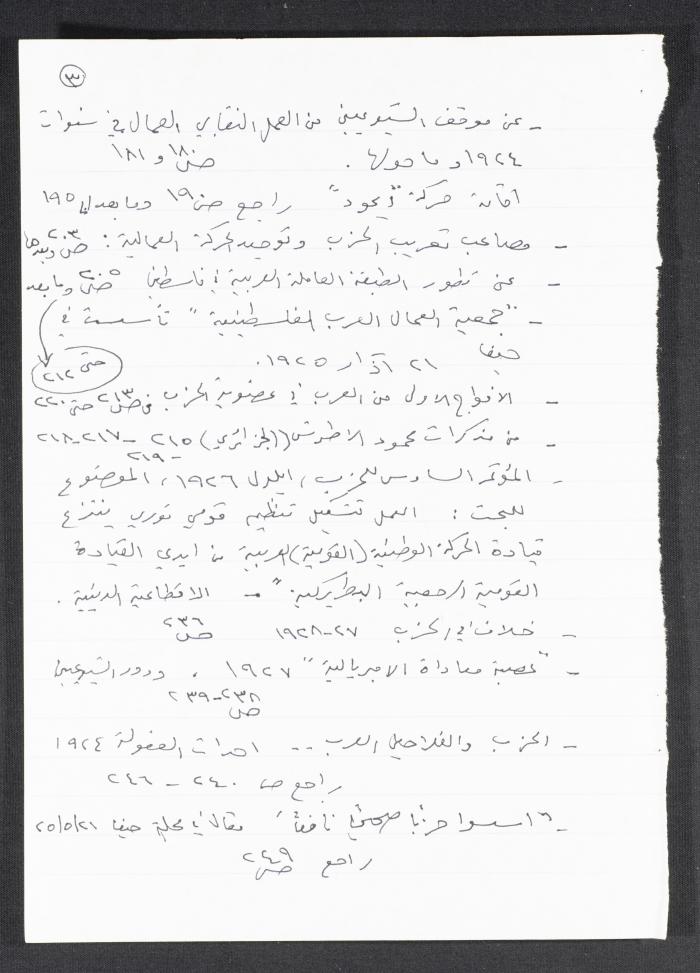 ٣
- عن موقف الشيوعيين من العمل النقابي العمالي في سنوات
١٩٢٤ وما حولها . ص ١٨٠ و ١٨١
حركة "إيحود" راجع ص ١٩ وما بعدها ١٩٥
- مصاعب تعريب الحزب وتوحيد الحركة العمالية : ص ٢٠٣ وبعدها
- عن تطور الطبقة العاملة العربية في فلسطين ص ٢٠٥ وما بعد
حتى ٢١٢
- "جمعية العمال العرب الفلسطينية" تأسست في
حيفا ٢١ آذار ١٩٢٥.
- الافواج الاولى من العرب في عضوية الحزب في ص ٢١٣ حتى ٢٢٠
- من مذكرات محمود الاطرش (الجزائري) ٢١٥ - ٢١٧ - ٢١٨
- ٢١٩
- المؤتمر السادس للحزب ، ايلول ١٩٢٦ ، الموضوع
للبحث : العمل لتشكيل تنظيم قومي ثوري ينتزع
قيادة الحركة الوطنية (القومية) العربية من ايدي القيادة
القومية الرجعية البطريركية" - الاقطاعية الدينية .
- خلاف في الحزب ٢٧-١٩٢٨ ص ٢٣٦
- "عصبة معاداة الامبريالية" ١٩٢٧ ، ودور الشيوعيين
ص ٢٣٨-٢٣٩
- الحزب والفلاحين العرب .. احداث العفولة ١٩٢٤
راجع ص ٢٤٠ - ٢٤٦
- "اسسوا حزبا صحيحا نافعا" مقال في مجلة حيفا ٢٥/٥/٢١
راجع ص ٢٤٩